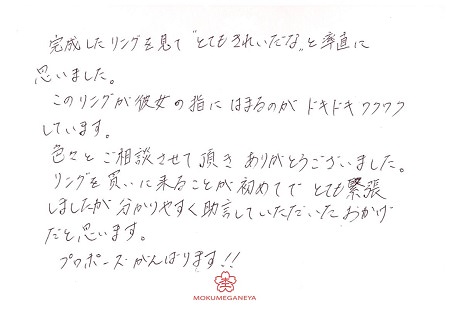 完成したリングを見て"とてもきれいだな"と率直に
思いました。
このリングが彼女の指にはまるのがドキドキワクワク
しています。
色々とご相談させて頂きありがとうございました。
リングを買いに来ることが初めてでとても緊張
しましたが分かりやすく助言していただいたおかげ
だと思います。
プロポーズがんばります!!
MOKUMEGANEYA